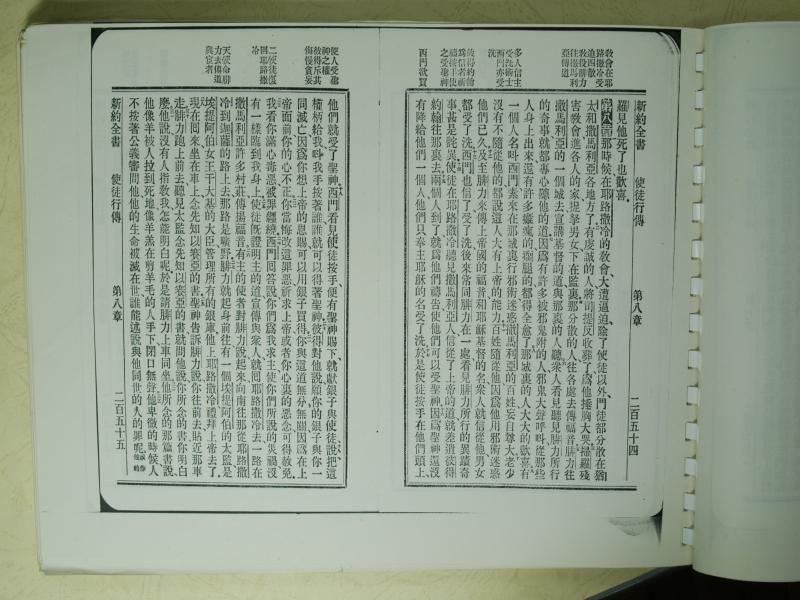 教會在耶
路撒冷受
迫四散
教役腓力
往撒馬利
亞傳道
多人信主
受洗術士
西門亦受
洗
彼得約翰
為信者祈
禱按手使
之受聖神
西門欲買
新約全書 使徒行傳 第八章 二百五十四
羅見他死了也歡喜
第八章那時候在耶路撒冷的教會大遭逼迫除了使徒以外門徒都分散在猶
太和撒馬利亞各地方了有虔誠的人將司提反收葬了為他捶胸大哭掃羅殘
害教會進各人的家提拏男女下在監裏那分散的人往各處去傳福音腓力往
撒馬利亞的一個城去宣講基督的道與那裏的人聽衆人看見聽見腓力所行
的奇事就都專心聽他的道因爲有許多被邪鬼附的人邪鬼大聲呼叫從那些
人身上出來還有許多癱瘋的瘸腿的都得全愈了那城裏的人大大的歡喜有
一個人名叫西門素來在那城裏行邪術迷惑撒馬利亞的百姓妄自尊大老少
沒有不隨從他的都說這人大有上帝的能力百姓隨從他因爲他用邪術迷惑
他們已久及至腓力來傳上帝國的福音和耶穌基督的名衆人就信從他男女
都受了洗西門也信了受了洗後來常同腓力在一處看見腓力所行的異蹟奇
事甚是詫異使徒在耶路撒冷聽見撒馬利亞人信從了上帝的道就差遣彼得
約翰往那裏去兩個人到了就爲他們禱告使他們可以受聖神因爲聖神還沒
有降給他們一個人他們只奉主耶穌的名受了洗於是使徒按手在他們頭上
使人受聖
神之權
彼得斥其
傷慢貪妄
二使徒返
回耶路撒
冷
天使命腓
力去傳道
與宦者
他們就受了聖神西門看見使徒按手便有聖神賜下就獻銀子與使徒說把這
權柄給我叫我手按著誰誰就可以得著聖神彼得對他說願你的銀子與你一
同滅亡因爲你想上帝的恩賜可以用銀子買得你與這道無分無關因爲在上
帝面前你的心不正你當悔改這罪惡祈求上帝或者你心裏的惡念可得赦免
我看你滿心毒惡被罪纏繞西門回答說你們爲我求主使你們所說的災禍沒
有一樣臨到我身上使徒旣證明主的道宣傳與衆人就回耶路撒冷去一路在
撒馬利亞許多村莊傳揚福音有主的使者對腓力說起來向南往那從耶路撒
冷到迦薩的路上去那路是曠野腓力就起身前往有一個埃提阿伯的太監是
埃提阿伯女王干大基的大臣管理所有的銀庫他上耶路撒冷禮拜上帝去了
現在回來坐在車上念先知以賽亞的書聖神告訴腓力說你往前去貼近那車
走腓力跑上前去聽見太監念先知以賽亞的書就問他說你所念的書你明白
麼他說沒有人指教我怎能明白呢於是請腓力上車同坐他所念的那篇書說
他像羊被人拉到死地像羊羔在剪羊毛的人手下閉口無聲他卑微的時候人
不按著公義審問他他的生命被滅在世誰能述說與他同世的人的罪呢
新約全書 使徒行傳 第八章 二百五十五